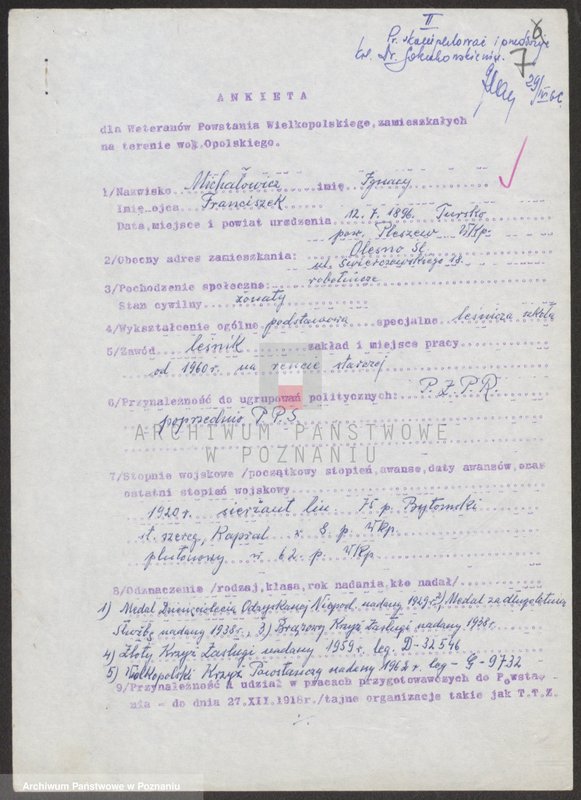 II
Pr. skompletować i
kol. Dr.
6
7
29/IV 65
ANKIETA
dla Weteranów Powstania Wielkopolskiego, zamieszkałych
na terenie woj. Opolskiego.
1/Nazwisko Michałowicz imię Ignacy
Imię ojca Franciszek
Data, miejsce i powiat urodzenia 12. 7. 1896. Tursko
pow. Pleszew Wlkp.
2/Obecny adres zamieszkania: Olesno Śl.
ul. Świerczewskiego
3/Pochodzenie społeczne: robotnicze
Stan cywilny żonaty
4/Wykształcenie ogólne podstawowe specjalne leśnicza szkoła
5/Zawód leśnik zakład i miejsce pracy
od 1960r. na rencie starczej
6/Przynależność do ugrupowań politycznych: P.Z.P.R.
poprzednio P.P.S.
ARCHIWUM PAŃSTWOWE
W POZNANIU
7/Stopnie wojskowe /początkowy stopień, awanse, daty awansów, oraz
ostatni stopień wojskowy
1920r. sierżant 75 p. Bytomski
st. szereg, Kapral w 8. p. Wlkp.
plutonowy w 62. p. Wlkp.
8/Odznaczenie /rodzaj, klasa, rok nadania, kto nadał/
1) Medal Dziesięciolecia Odzyskanej Niepod. nadany 1929r. 2) Medal za długoletnią
Służbę nadany 1938r., 3) Brązowy Krzyż Zasługi nadany 1938r.
4) Złoty Krzyż Zasługi nadany 1959r. leg. D-32546
5) Wielkopolski Krzyż Powstańczy nadany 1962r. leg- G-9732
9/Przynależność a udział w pracach przygotowawczych do Powsta-
nia - do dnia 27.XII.1918r./tajne organizacje takie jak T.T.Z.
Archiwum Państwowe w Poznaniu